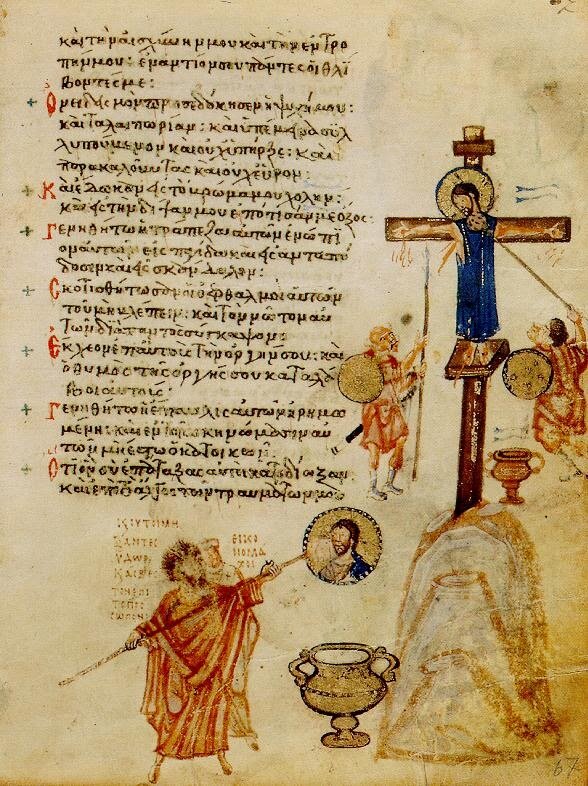 καὶ τὴν αἰσχύνην μου καὶ τὴν ἐντρο
πήν μου: ἐναντίον σου πάντες οἱ θλί
βοντές με:
Ὀνειδισμὸν προσεδόκησεν ἡ ψυχή μου:
καὶ ταλαιπωρίαν: καὶ ὑπέμεινα συλ
λυπούμενον καὶ οὐχ ὑπῆρξε: καὶ
παρακαλοῦντας καὶ οὐχ εὗρον:
Καὶ ἔδωκαν εἰς τὸ βρῶμά μου χολήν:
καὶ εἰς τὴν δίψαν μου ἐπότισάν με ὄξος:
Γενηθήτω ἡ τράπεζα αὐτῶν ἐνώπι
ον αὐτῶν εἰς παγίδα καὶ εἰς ἀνταπό
δοσιν καὶ εἰς σκάνδαλον:
Σκοτισθήτωσαν οἱ ὀφθαλμοὶ αὐτῶν
τοῦ μὴ βλέπειν: καὶ τὸν νῶτον αὐ
τῶν διὰ παντὸς σύγκαμψον:
Ἔκχεον ἐπ' αὐτοὺς τὴν ὀργήν σου: καὶ
ὁ θυμὸς τῆς ὀργῆς σου καταλά
βοι αὐτούς:
Γενηθήτω ἡ ἔπαυλις αὐτῶν ἠρημω
μένη: καὶ ἐν τοῖς σκηνώμασιν αὐ
τῶν μὴ ἔστω ὁ κατοικῶν
Ὅτι ὃν σὺ ἐπάταξας αὐτοὶ κατεδίωξαν
καὶ ἐπὶ τὸ ἄλγος τῶν τραυμάτων μου
ΕΙΚΟ
ΝΟΜΑ
ΧΟΙ
ΥΔΩΡ
67